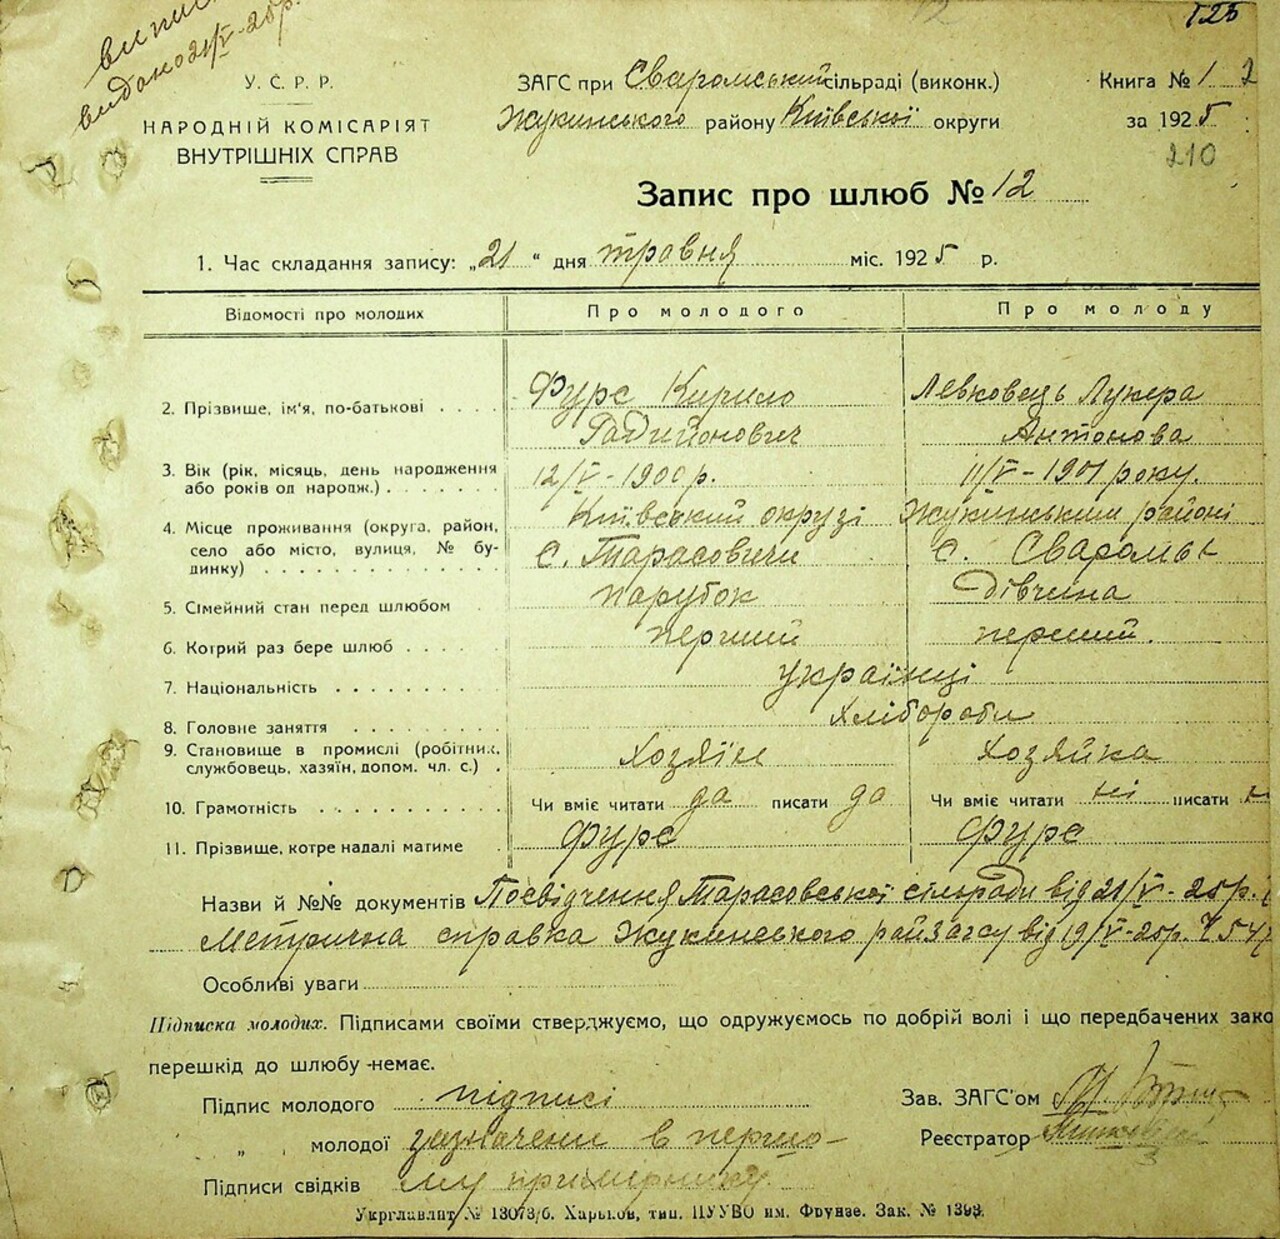 видано 21/V-25р.
125
У.С.Р.Р.
НАРОДНІЙ КОМІСАРІЯТ
ВНУТРІШНІХ СПРАВ
ЗАГС при Сваромський сільраді (виконк.)
Жукинського району Київської округи
Книга № 1
за 1925
210
Запис про шлюб № 12
1. Час складання запису: „21" дня травня міс. 1925 р.
Відомості про молодих Про молодого Про молоду
2. Прізвище, ім'я, по-батькові . . . . Фурс Кирило Левковець Лукера
Радийонович Антонова
3. Вік (рік, місяць, день народження
або років од народж.) . . . . . . . 12/V-1900 р. 11/V-1901 року.
4. Місце проживання (округа, район,
село або місто, вулиця, № бу-
динку) . . . . . . . . . . . . . .
Київський окрузі Жукинським районі
с. Тарасовичи с. Сваромьє
5. Сімейний стан перед шлюбом парубок дівчина
6. Котрий раз бере шлюб . . . . перший перший.
7. Національність . . . . . . . . . українці
8. Головне заняття . . . . . . . . хлібороби
9. Становище в промислі (робітник,
службовець, хазяїн, допом. чл. с.) . Хозяїн Хозяйка
10. Грамотність . . . . . . . . . . Чи вміє читати да писати да Чи вміє читати ні писати
11. Прізвище, котре надалі матиме . Фурс Фурс
Назви й №№ документів Посвідчення Тарасовської сільради від 21/V-25р.
Метрична справка Жукинського райзагсу від 19/V-25р.
Особливі уваги
Підписка молодих. Підписами своїми стверджуємо, що одружуємось по добрій волі і що передбачених зако
перешкід до шлюбу -немає.
Підпис молодого підписі
„ молодої зазначени в першо-
Підписи свідків му примірнику.
Зав. ЗАГС'ом
Реєстратор
Укрглавліт № 13073/б. Харьков, тип. ЦУУВО им. Фрунзе. Зак. № 1393.